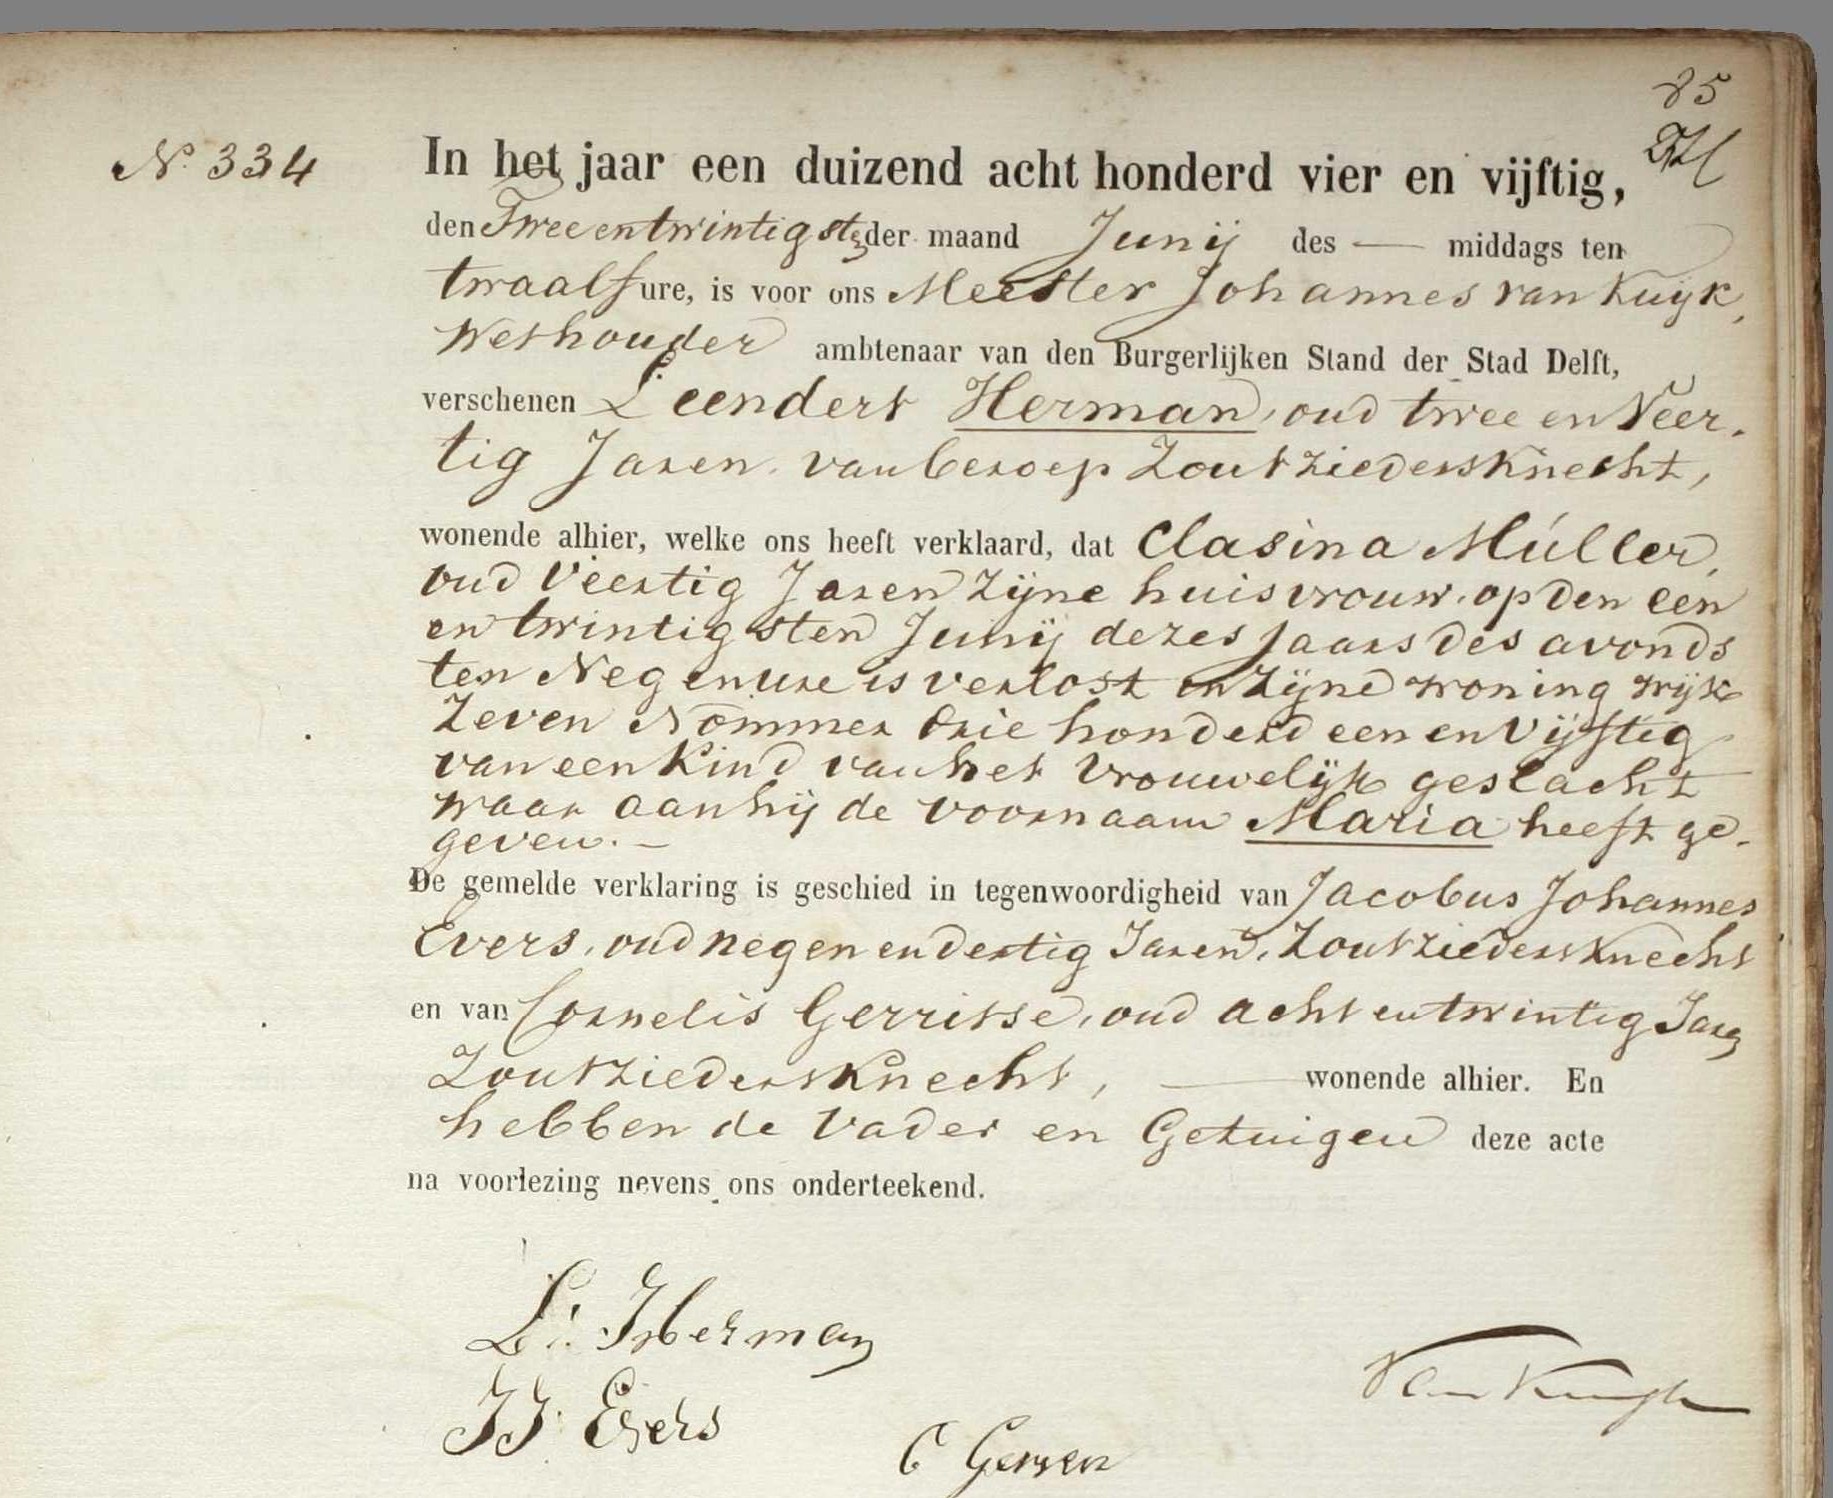 85
N. 334
In het jaar een duizend acht honderd vier en vijftig,
den Twee en twintigsten der maand Junij des — middags ten
twaalf ure, is voor ons Meester Johannes van Kuyk,
Wethouder ambtenaar van den Burgerlijken Stand der Stad Delft,
verschenen Leendert Herman, oud twee en Veer-
tig Jaren. van beroep Zoutziedersknecht,
wonende alhier, welke ons heeft verklaard, dat Clasina Múller,
oud Veertig Jaren zijne huisvrouw. op den een
en twintigsten Junij dezes Jaars des avonds
ten Negen ure is verlost in zijne woning wijk
Zeven Nommer drie honderd een en Vijftig
van een Kind van het Vrouwelijk geslacht
waar aan hij de voornaam Maria heeft ge-
geven. —
De gemelde verklaring is geschied in tegenwoordigheid van Jacobus Johannes
Evers, oud negen en dertig Jaren, Zoutziedersknecht
en van Cornelis Gerritse, oud acht en twintig Jaren
Zoutziedersknecht, — wonende alhier. En
hebben de Vader en Getuigen deze acte
na voorlezing nevens ons onderteekend.
L: Herman
Van Kuyk
JJ: Evers
C